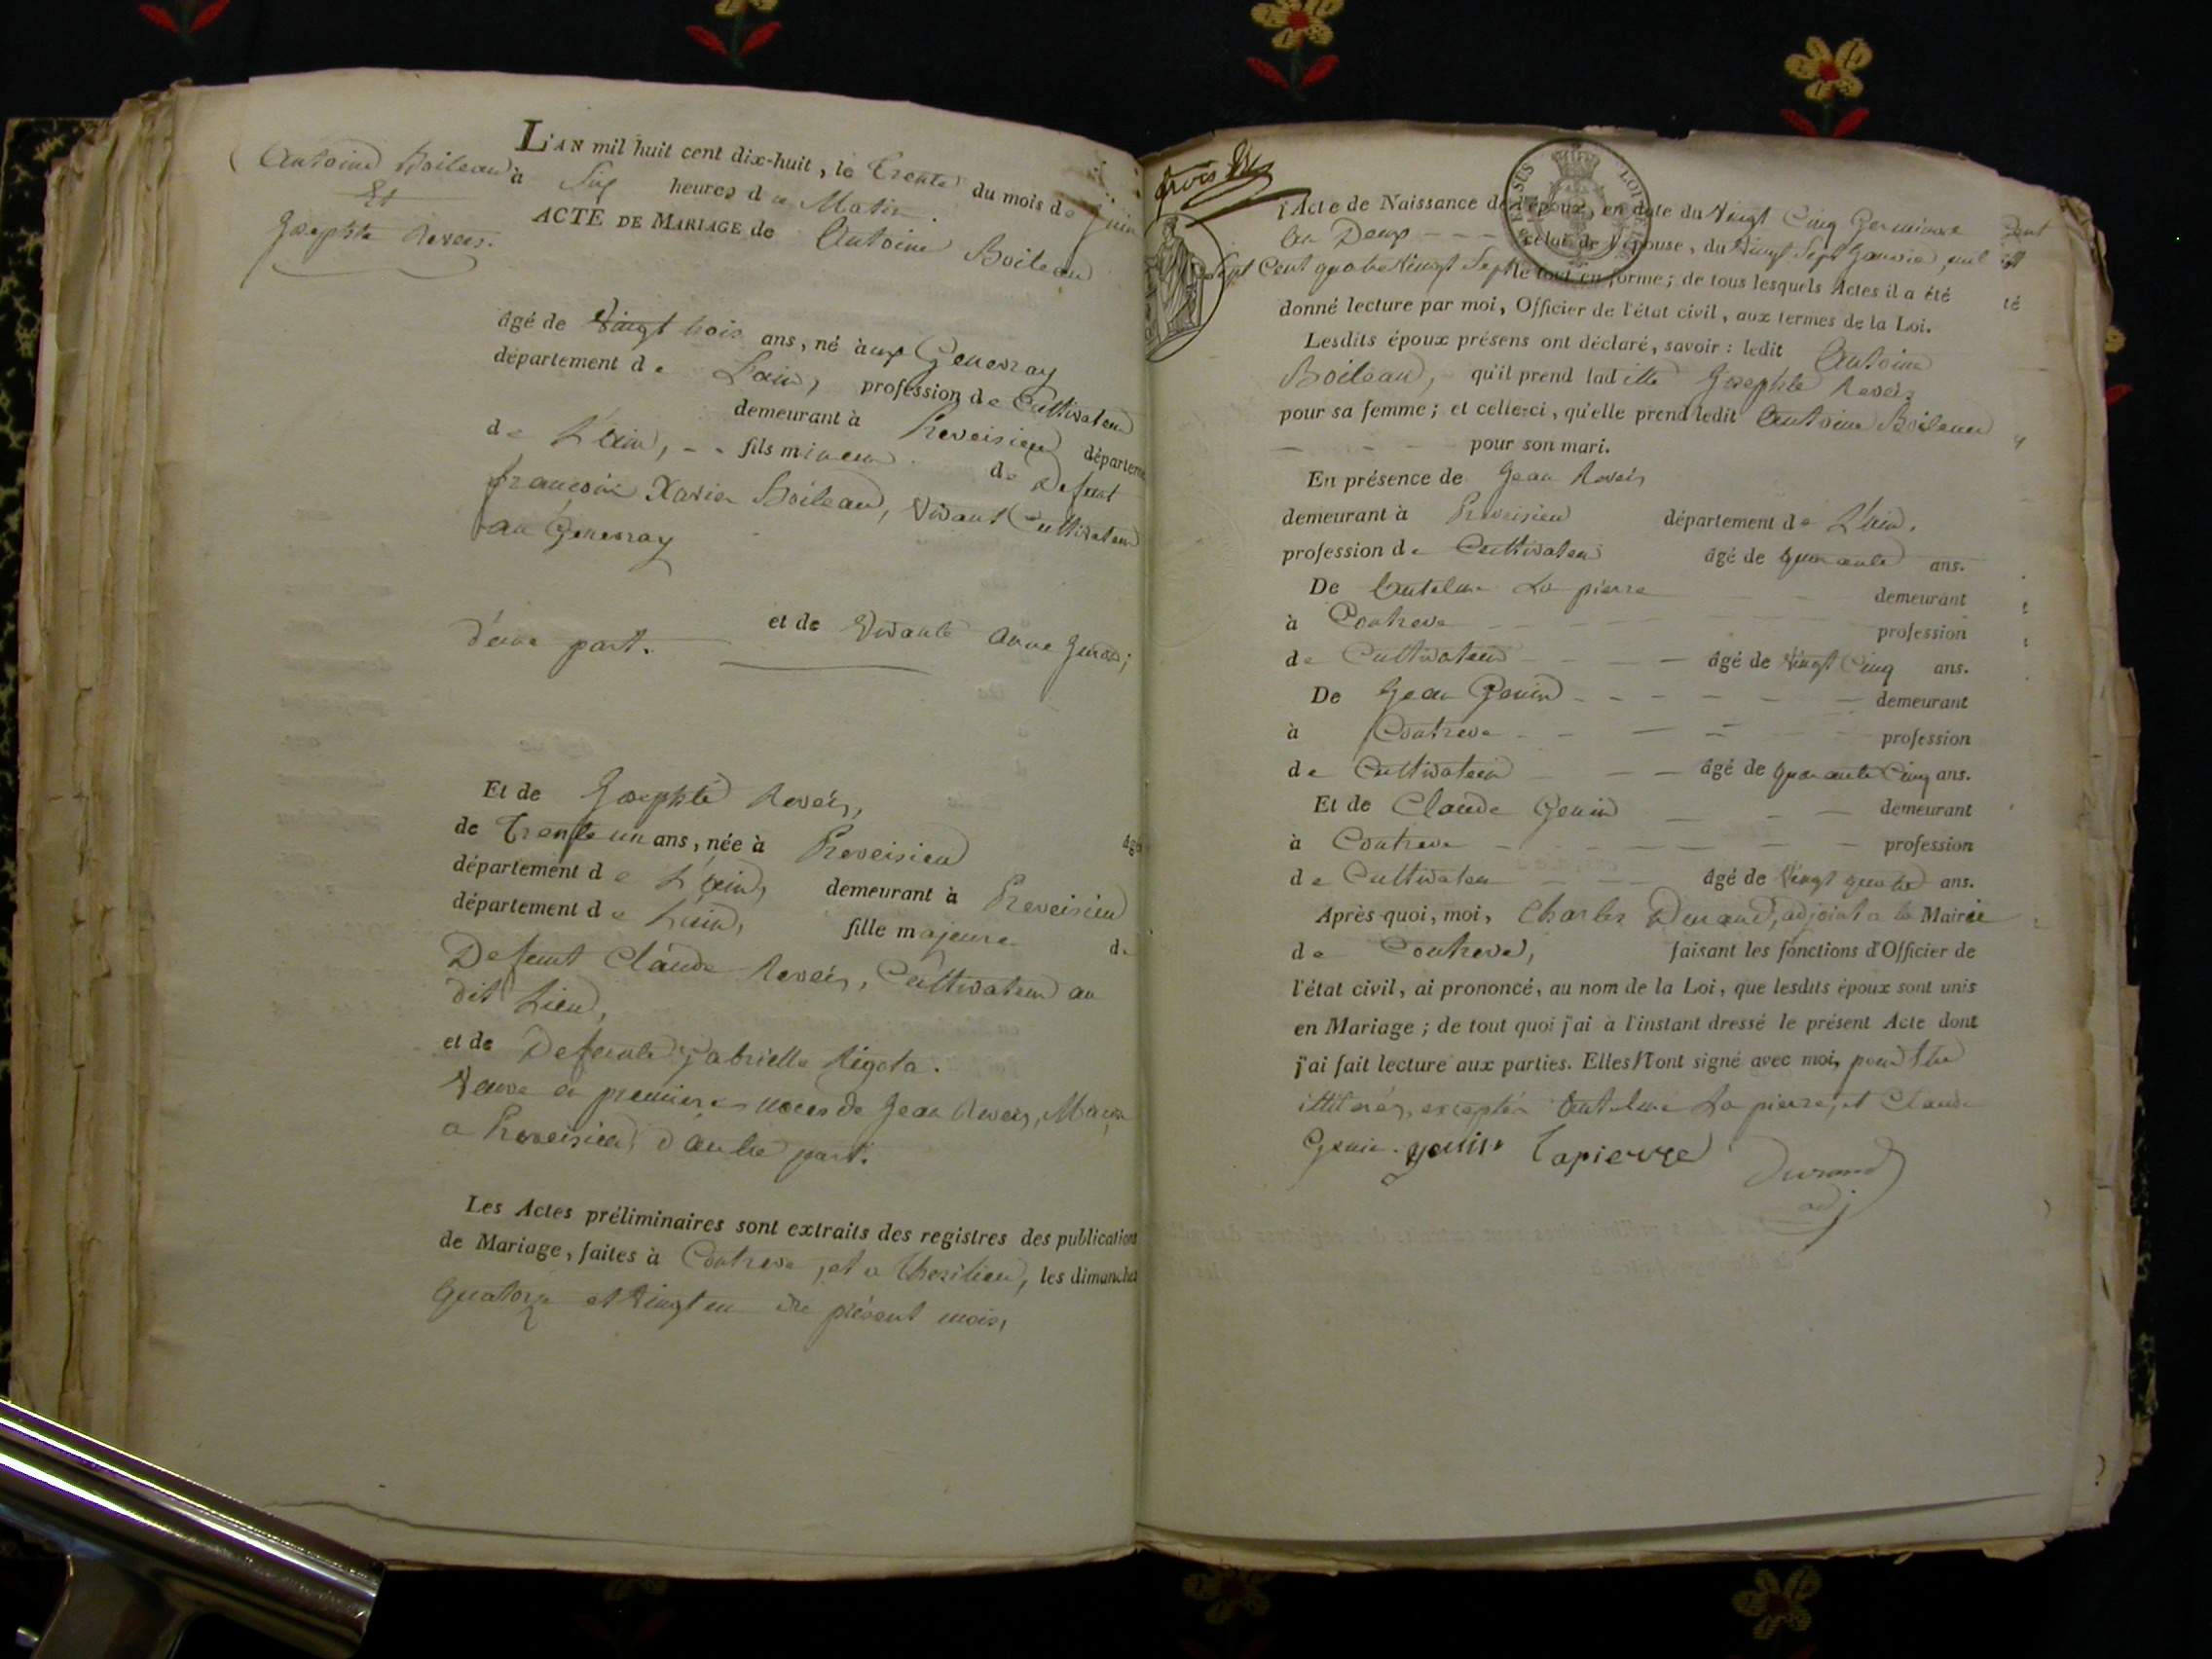 Antoine Boileau
Et
Josephte Reveis.
L'AN mil huit cent dix-huit, le Trente du mois de Juin
à Six heures du Matin.
ACTE DE MARIAGE de Antoine Boileau
âgé de Vingt trois ans, né aux Genevray
département de Lain, profession de Cultivateur
demeurant à Preveisieu départeme
de L'ain, - - fils mineur de Defunt
francois Xavier Boileau, Vivant Cultivateur
au Genevray
et de Vivante anne
d'une part.
Et de Josephte Reveis,
âgé
de Trente un ans, née à Preveisieu
département de L'ain, demeurant à Preveisieu
département de L'ain, fille majeure de
Defunt Claude Reveis, Cultivateur au
dit Lieu,
et de Defunte Gabrielle Rigota.
Veuve en premieres noces de Jean Reveis, Maçon
a Preveisieu, d'autre part.
Les Actes préliminaires sont extraits des registres des publications
de Mariage, faites à Contreve, et a Cheilieu, les dimanches
Quatorze et Vingt un du présent mois,
trois
Acte de Naissance de l'époux, en date du Vingt Cinq Germinal
An Deux - - - celui de l'épouse, du Vingt Sept Janvier, mil
Sept Cent quatre Vingt Sept le tout en forme; de tous lesquels Actes il a été
donné lecture par moi, Officier de l'état civil, aux termes de la Loi.
Lesdits époux présens ont déclaré, savoir: ledit Antoine
Boileau, qu'il prend ladite Josephte Reveis
pour sa femme; et celle-ci, qu'elle prend ledit Antoine Boileau
- - - - pour son mari.
En présence de Jean Reveis
demeurant à Preveisieu département de L'ain.
profession de Cultivateur âgé de quarante ans.
De Antelme La pierre - - demeurant
à Contreve - - - profession
de Cultivateur - - - âgé de Vingt Cinq ans.
De Jean Genin - - - - - demeurant
à Contreve - - - - profession
de Cultivateur - - - âgé de quarante Cinq ans.
Et de Claude Genin - - - demeurant
à Contreve - - - - - profession
de Cultivateur - - - âgé de Vingt quatre ans.
Après quoi, moi, Charles Durand, adjoint a la Mairie
de Contreve, faisant les fonctions d'Officier de
l'état civil, ai prononcé, au nom de la Loi, que lesdits époux sont unis
en Mariage; de tout quoi j'ai à l'instant dressé le présent Acte dont
j'ai fait lecture aux parties. Elles N'ont signé avec moi, pour Etre
illitérés, exceptés Antelme La pierre, et Claude
Genin. genin Lapierre Durand
adj